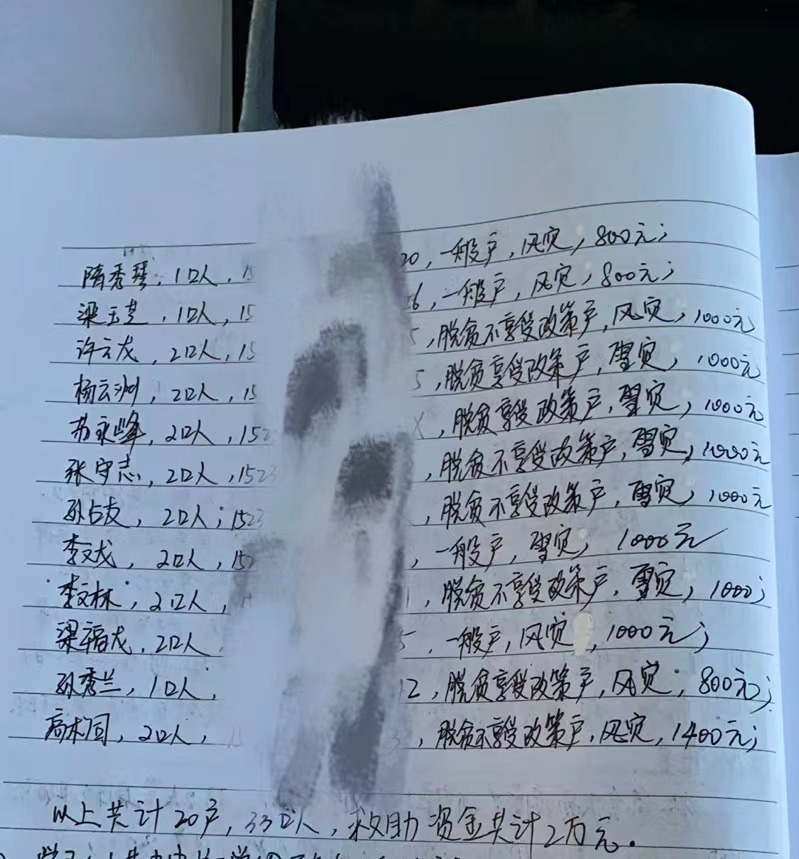 隋秀琴，1口人，15 20，一般户，风灾，800元；
梁玉芝，1口人，15 6，一般户，风灾，800元；
许云龙，2口人，15 5，脱贫不享受政策户，风灾，1000元
杨云洲，2口人，15 5，脱贫享受政策户，雪灾，1000元
苏永峰，2口人，152 X，脱贫享受政策户，雪灾，1000元
张守志，2口人，1523 ，脱贫不享受政策户，雪灾，1000元
孙占友，2口人；1523 ，脱贫不享受政策户，雪灾，1000元
李文龙，2口人，152 ，一般户，雪灾，1000元
李文林，2口人，1 1，脱贫不享受政策户，雪灾，1000；
梁福龙，2口人 5，一般户，风灾，1000元；
孙秀兰，1口人， 12，脱贫享受政策户，风灾，800元；
高木同，2口人， 3，脱贫不享受政策户，风灾，1400元；
以上共计20户，33口人，救助资金共计2万元。